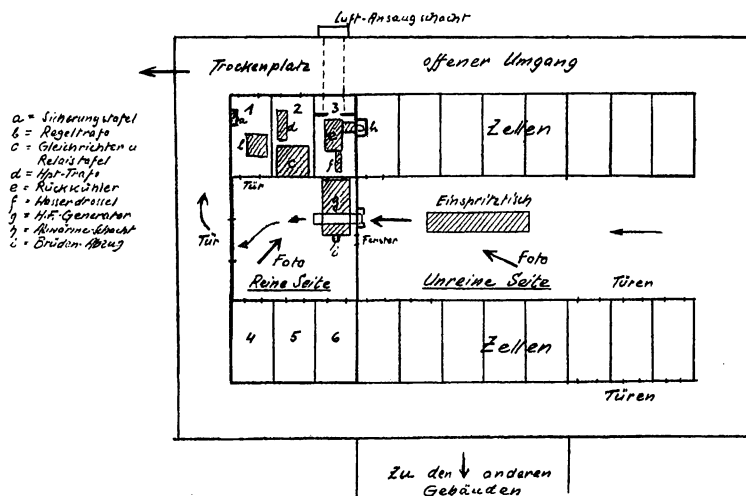 Luft-Ansaugschacht
Trockenplatz
offener Umgang
a = Sicherungstafel
b = Regeltrafo
c = Gleichrichter u
Relaistafel
d = Hpt-Trafo
e = Rückkühler
f = Wasserdrossel
g = H.F.-Generator
h = Abwärme-Schacht
i = Brüden-Abzug
1
2
3
a
b
d
c
e
f
h
Zellen
Tür
g
Einspritztisch
Tür
i
Fenster
Foto
Foto
Reine Seite
Unreine Seite
Türen
4
5
6
Zellen
Türen
Zu den anderen
Gebäuden